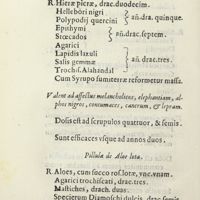 R. Hieræ picræ, drac. duodecim.
Hellebori nigri
Polypodij quercini } añ. dra. quinque.
Epithymi
Stœcados } añ. drac. septem.
Agarici
Lapidis lazuli
Salis gemmæ } añ. drac. tres.
Trochis. Alahandal
Cum Syrupo fumiterræ reformetur massa.
Valent ad affectus melancholicos, elephantiam, al-
phos nigros, contumaces, cancrum, & lepram.
Dosis est ad scrupulos quattuor, & semis.
Sunt efficaces vsque ad annos duos.
Pillulæ de Aloe lota.
R. Aloes, cum succo ros. lotæ, vnc. vnam.
Agarici trochiscati, drac. tres.
Mastiches, drach. duas.
Specierum Diamoschi dulcis, drac. semis